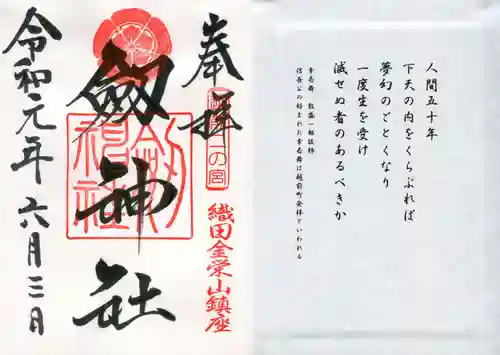 奉拝
一の宮
織田金栄山鎮座
劔神社
劔神社
令和元年六月三日
人間五十年
下天の内をくらぶれば
夢幻のごとくなり
一度生を受け
滅せぬ者のあるべきか
幸若舞 敦盛一部抜粋
信長公の好まれた幸若舞は越前町発祥といわれる